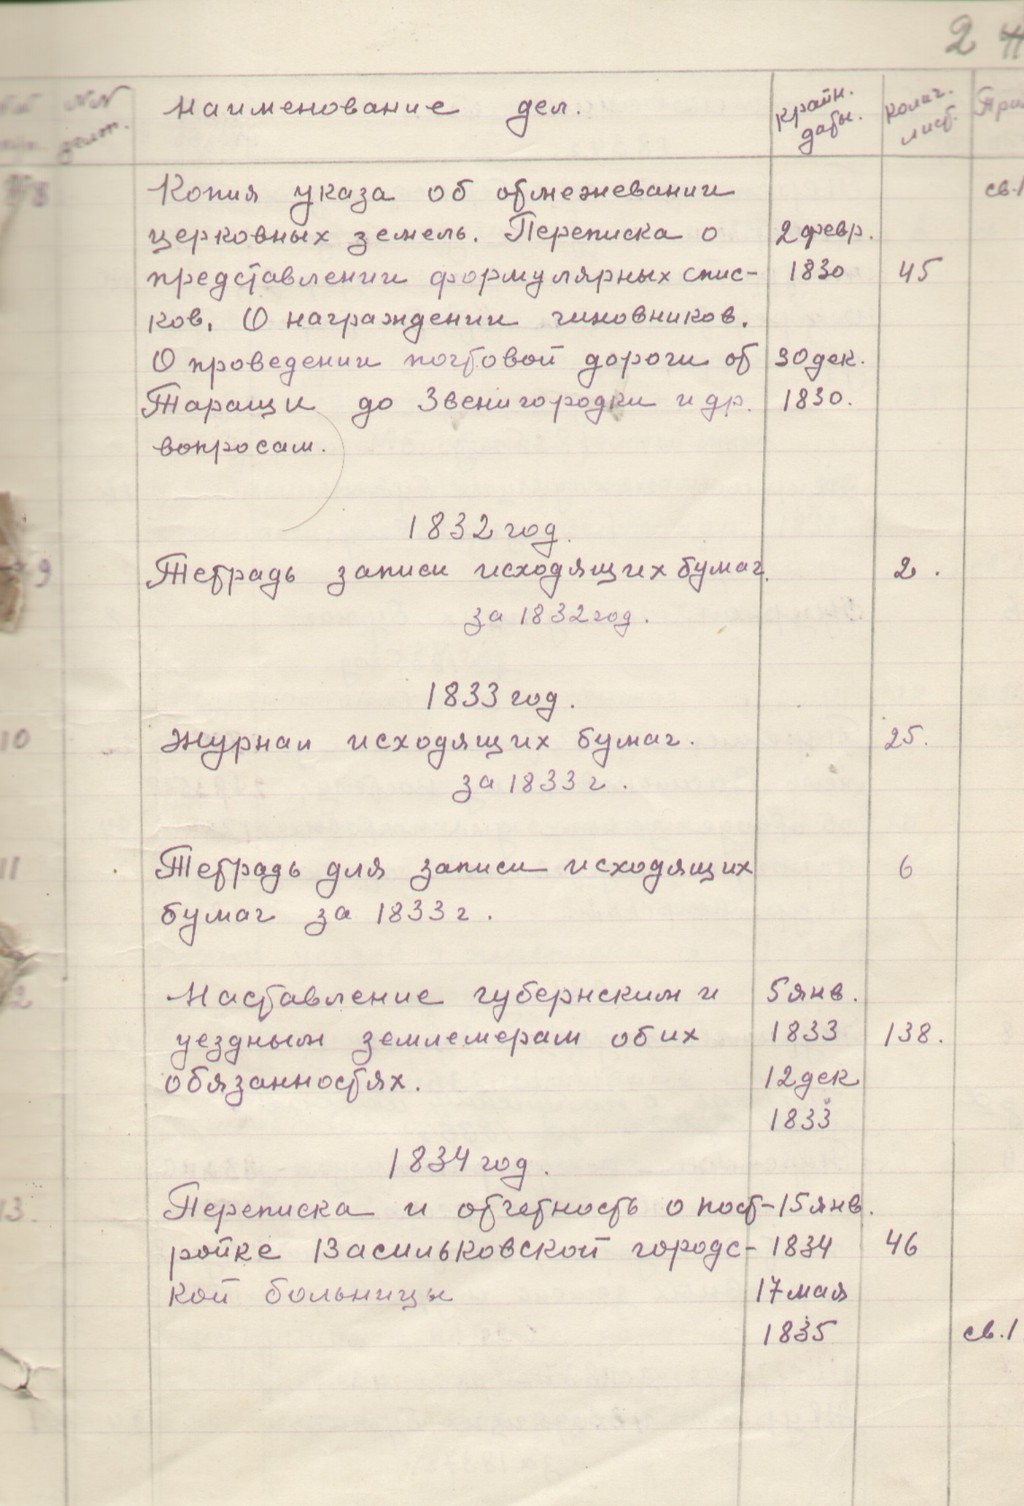 2
№№ Наименование дел. крайн. колич. При
даты. лист.
8 Копия указа об отмежевании св.1
церковных земель. Переписка о 2 февр.
представлении формулярных спис- 1830 45
ков. О награждении чиновников.
О проведении почтовой дороги от 30 дек.
Таращи до Звенигородки и др. 1830.
вопросам.
1832 год.
9 Тетрадь записи исходящих бумаг. 2.
за 1832 год.
1833 год.
10 Журнал исходящих бумаг. 25.
за 1833 г.
11 Тетрадь для записи исходящих 6
бумаг за 1833 г.
2 Наставление губернским и 5 янв.
уездным землемерам об их 1833 138.
обязанностях. 12 дек
1833
1834 год.
13. Переписка и отчетность о пост- 15 янв.
ройке Васильковской городс- 1834 46
кой больницы 17 мая
1835 св.1